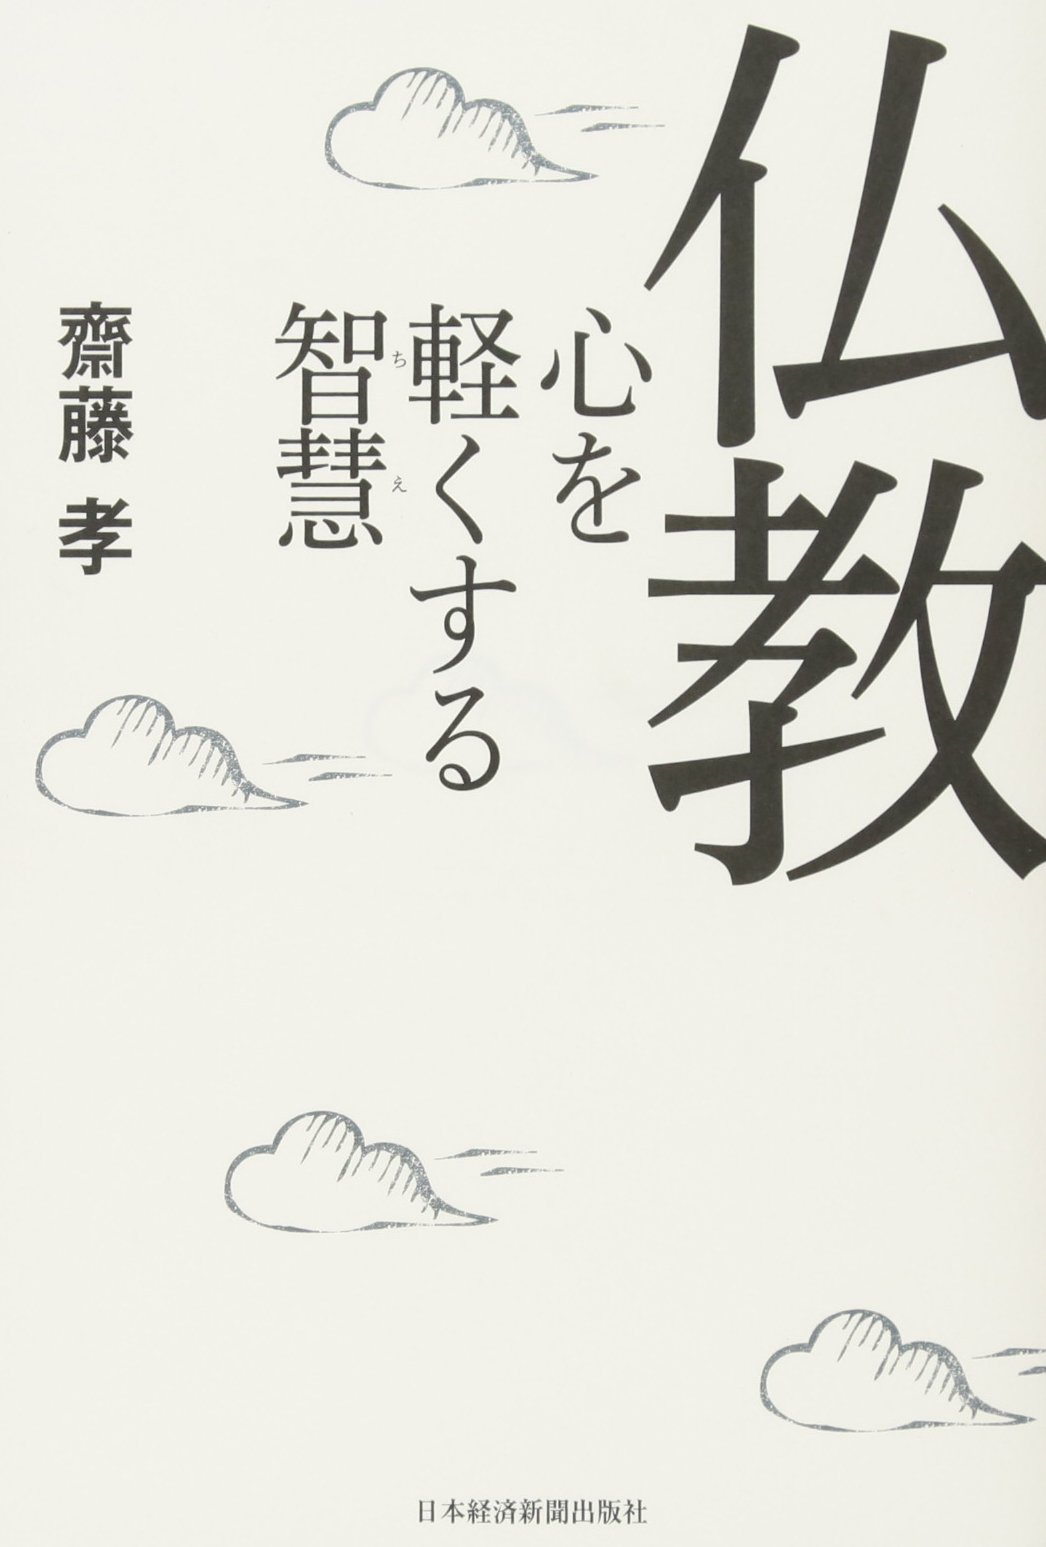 仏教
心を
軽くする
智慧
ちえ
齋藤 孝
日本経済新聞出版社